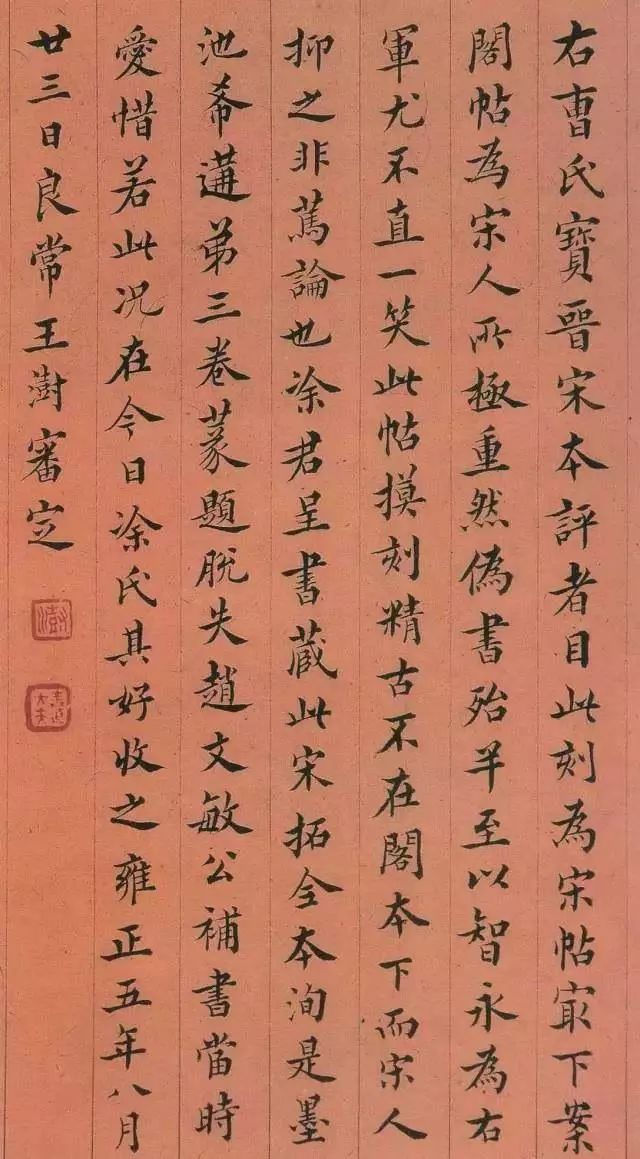 右曹氏寶晉宋本評者目此刻為宋帖冣下案
閣帖為宋人所極重然偽書殆半至以智永為右
軍尤不直一笑此帖摸刻精古不在閣本下而宋人
抑之非篤論也凃君呈書蔵此宋拓全本洵是墨
池希遘弟三卷篆題脫失趙文敏公補書當時
愛惜若此况在今日凃氏其好收之雍正五年八月
廿三日良常王澍審定
澍